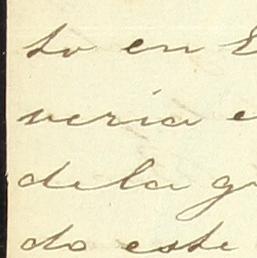 to en E
veria e
de la g
do este